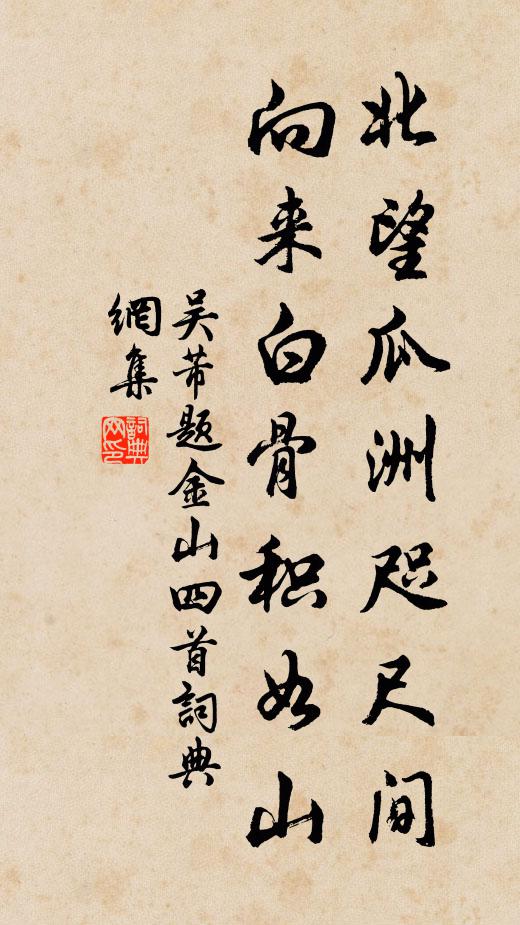 北望瓜洲咫尺间
向来白骨积如山
吴芾题金山四首詞典
網集
詞典
网印